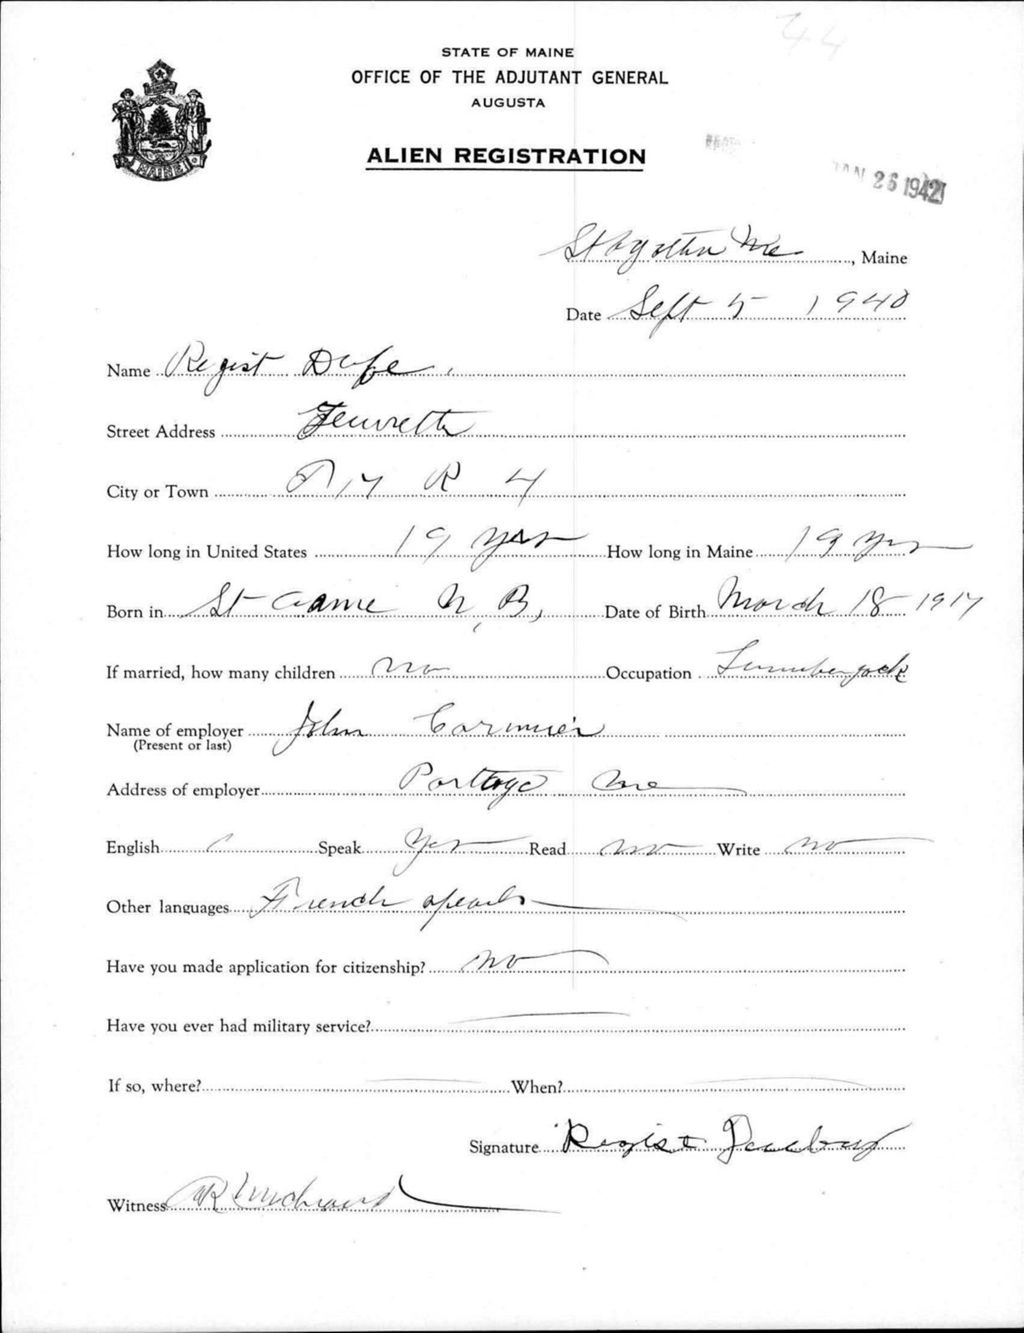 STATE OF MAINE
OFFICE OF THE ADJUTANT GENERAL
AUGUSTA
ALIEN REGISTRATION
MAINE
26 1942
44
St Agatha Me, Maine
Date Sept 5 1940
Name Regist
Street Address
City or Town T 17 R 4
How long in United States 19 yrs How long in Maine 19 yrs
Born in St Anne N, B, Date of Birth March 18 1917
If married, how many children no Occupation Lumberjack
Name of employer John Cormier
(Present or last)
Address of employer Portage Me
English Speak Yes Read no Write no
Other languages French speaks
Have you made application for citizenship? no
Have you ever had military service?
If so, where? When?
Signature Regist
Witness